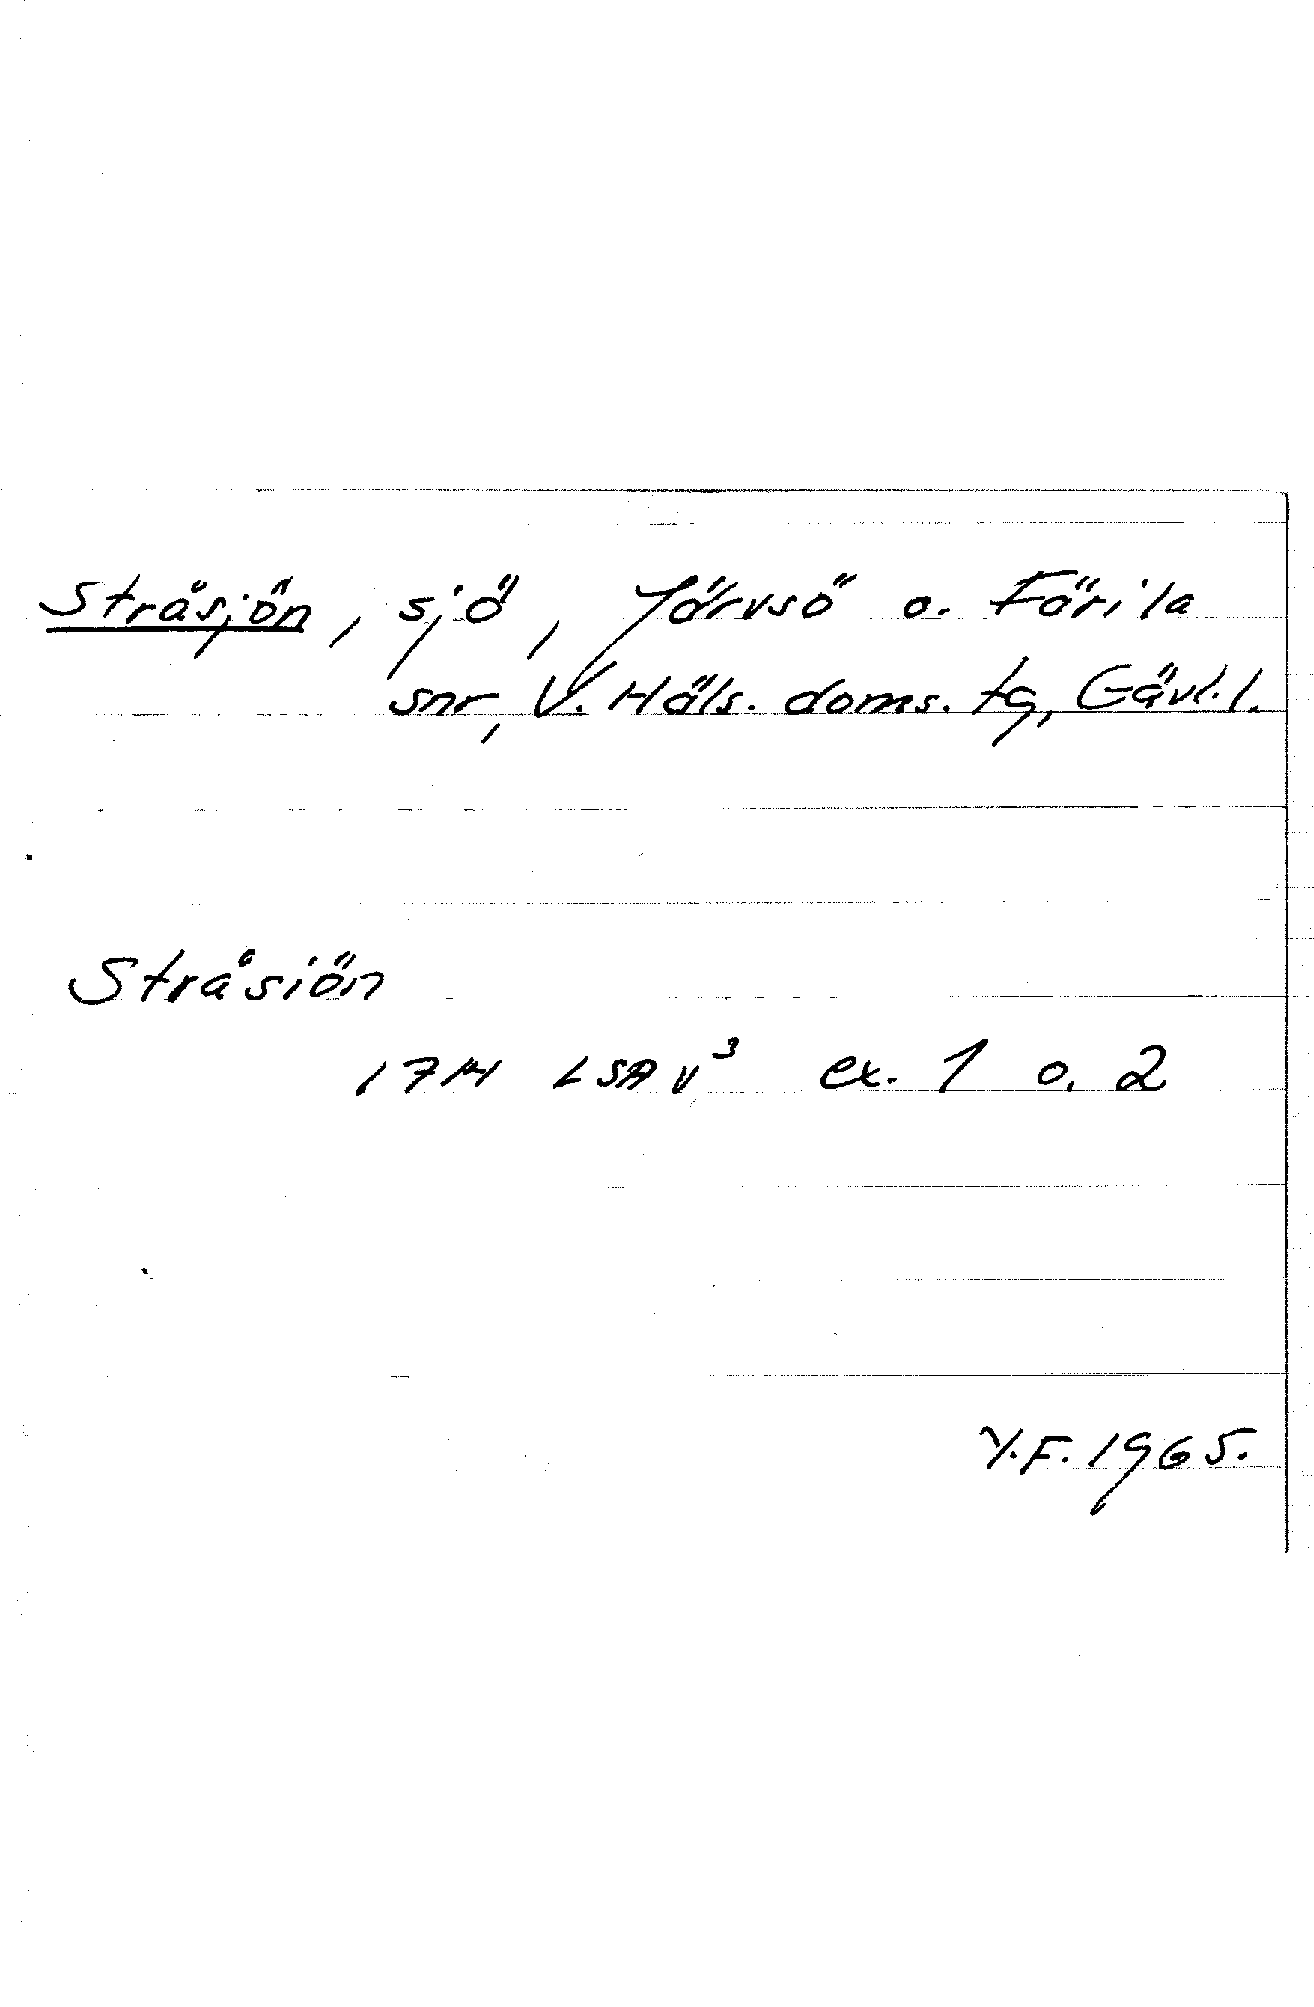 Stråsjön, sjö, Järvsö o. Färila
snr, V. Häls. doms. tg, Gävl. l.
Stråsiön
1714 LSA V³ ex. 1 o. 2
Y.F. 1965.